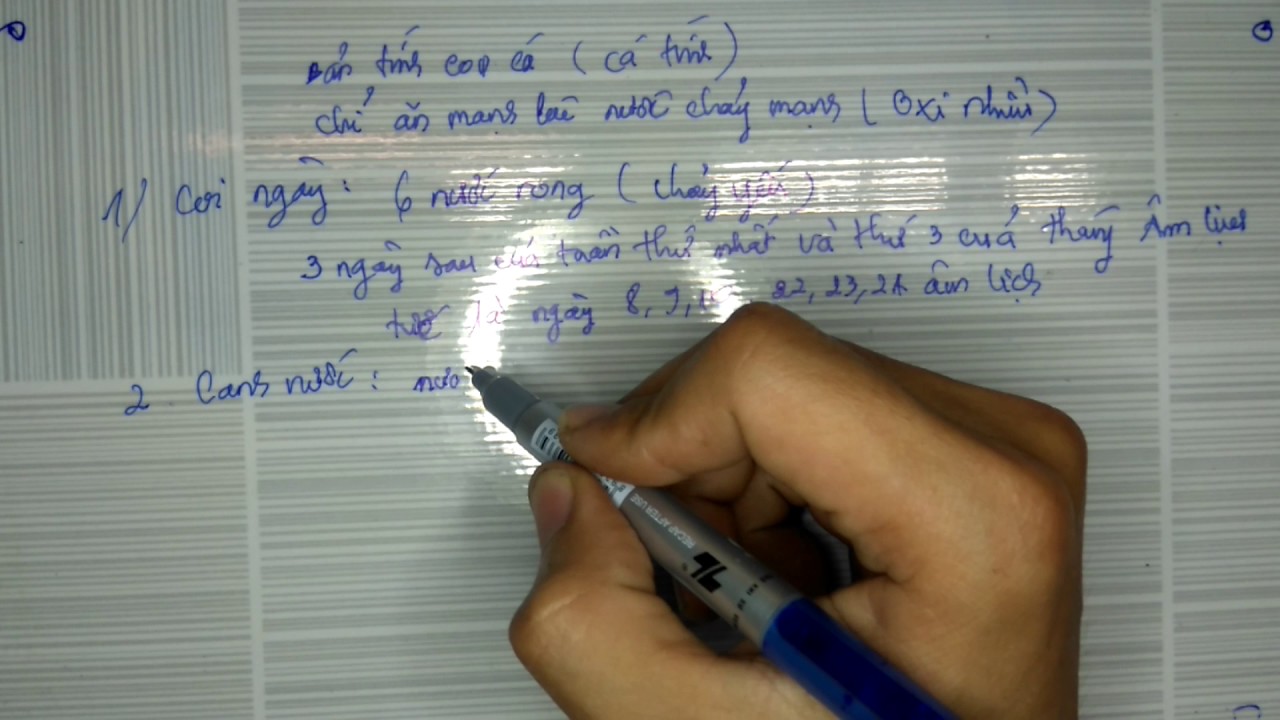 Bản tính con cá (cá tính)
chỉ ăn mạnh lúc nước chảy mạnh (Oxi nhiều)
1) Coi ngày: 6 nước ròng (chảy yếu)
3 ngày sau của tuần thứ nhất và thứ 3 của tháng Âm lịch
tức là ngày 8, 9, 10 22, 23, 24 âm lịch
2 Canh nước: nướ
RECAP AFTER USE
TL